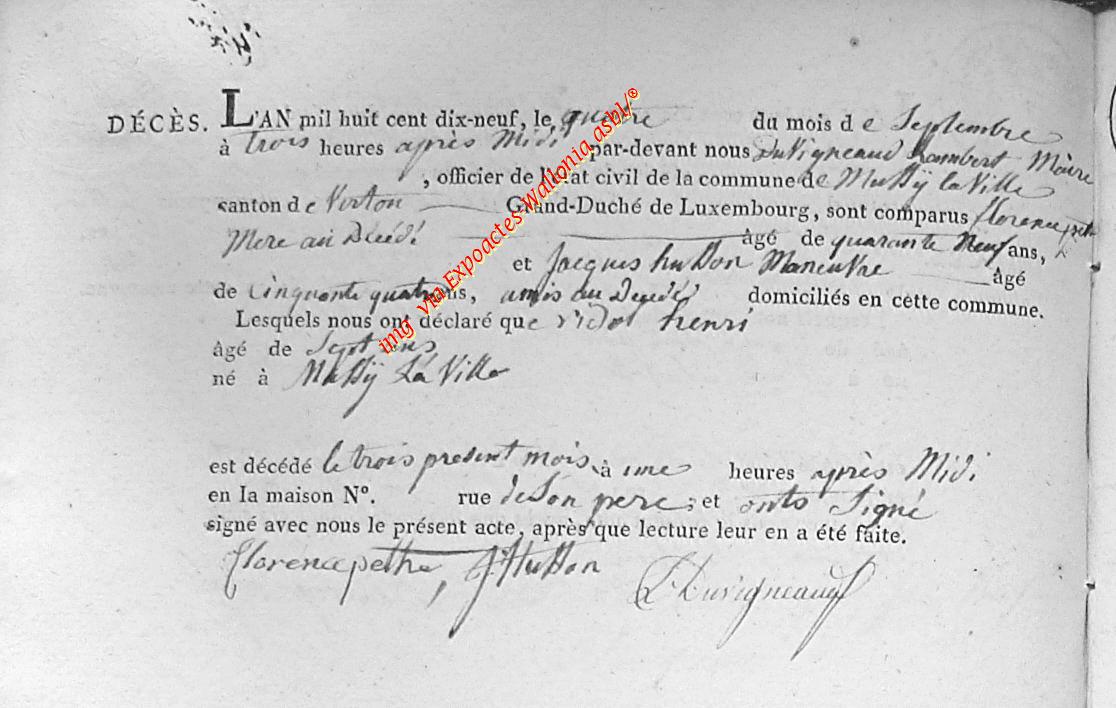 DÉCÈS. L'AN mil huit cent dix-neuf, le quatre du mois d e Septembre
à trois heures après Midi par-devant nous Duvigneaud Lambert Maire
, officier de l'état civil de la commune de Mussÿ la Ville
canton d e Virton Grand-Duché de Luxembourg, sont comparus florence pethe
Mere au Décédé âgé de quarante Neuf ans,
et Jacques husson Maneuvre âgé
de Cinquante quatre ans, amis au Decedé domiciliés en cette commune.
Lesquels nous ont déclaré que henri
âgé de Sept ans
né à Mussÿ La Ville
est décédé le trois present mois à une heures après Midi
en la maison Nº. rue de Son pere; et onts Signé
signé avec nous le présent acte, après que lecture leur en a été faite.
florence pethe, J Husson Duvigneaud
img via Expoactes-Wallonia asbl/®